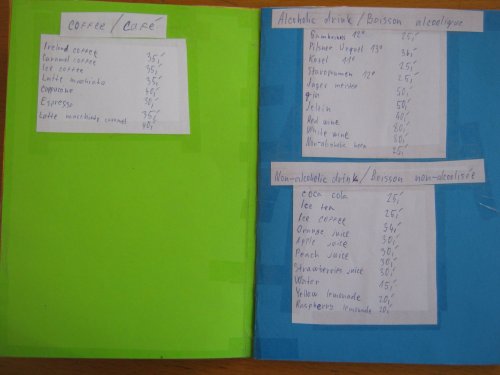 COFFEE / CAFÉ
Ireland coffee
Caramel coffee 35,-
Ice coffee 35,-
Latte machiato 35,-
Cappucino 40,-
Espresso 30,-
Latte macchiato caramel 35,-
40,-
Alcoholic drink / Boisson alcoolique
Gambrinus 12° 25,-
Pilsner Urquell 13°
Kozel 11° 25,-
Staropramen 12° 25,-
Jager meister 50,-
gin 50,-
Jelzin 40,-
Red wine 80,-
White wine 80,-
Non-alcoholic beer 25,-
Non-alcoholic drink / Boisson non-alcoolisée
coca cola 25,-
Ice tea
Ice coffee 25,-
Orange juice
Apple juice 30,-
Peach juice 30,-
Strawberries juice 30,-
Water 15,-
Yellow lemonade 20,-
Raspberry lemonade 20,-